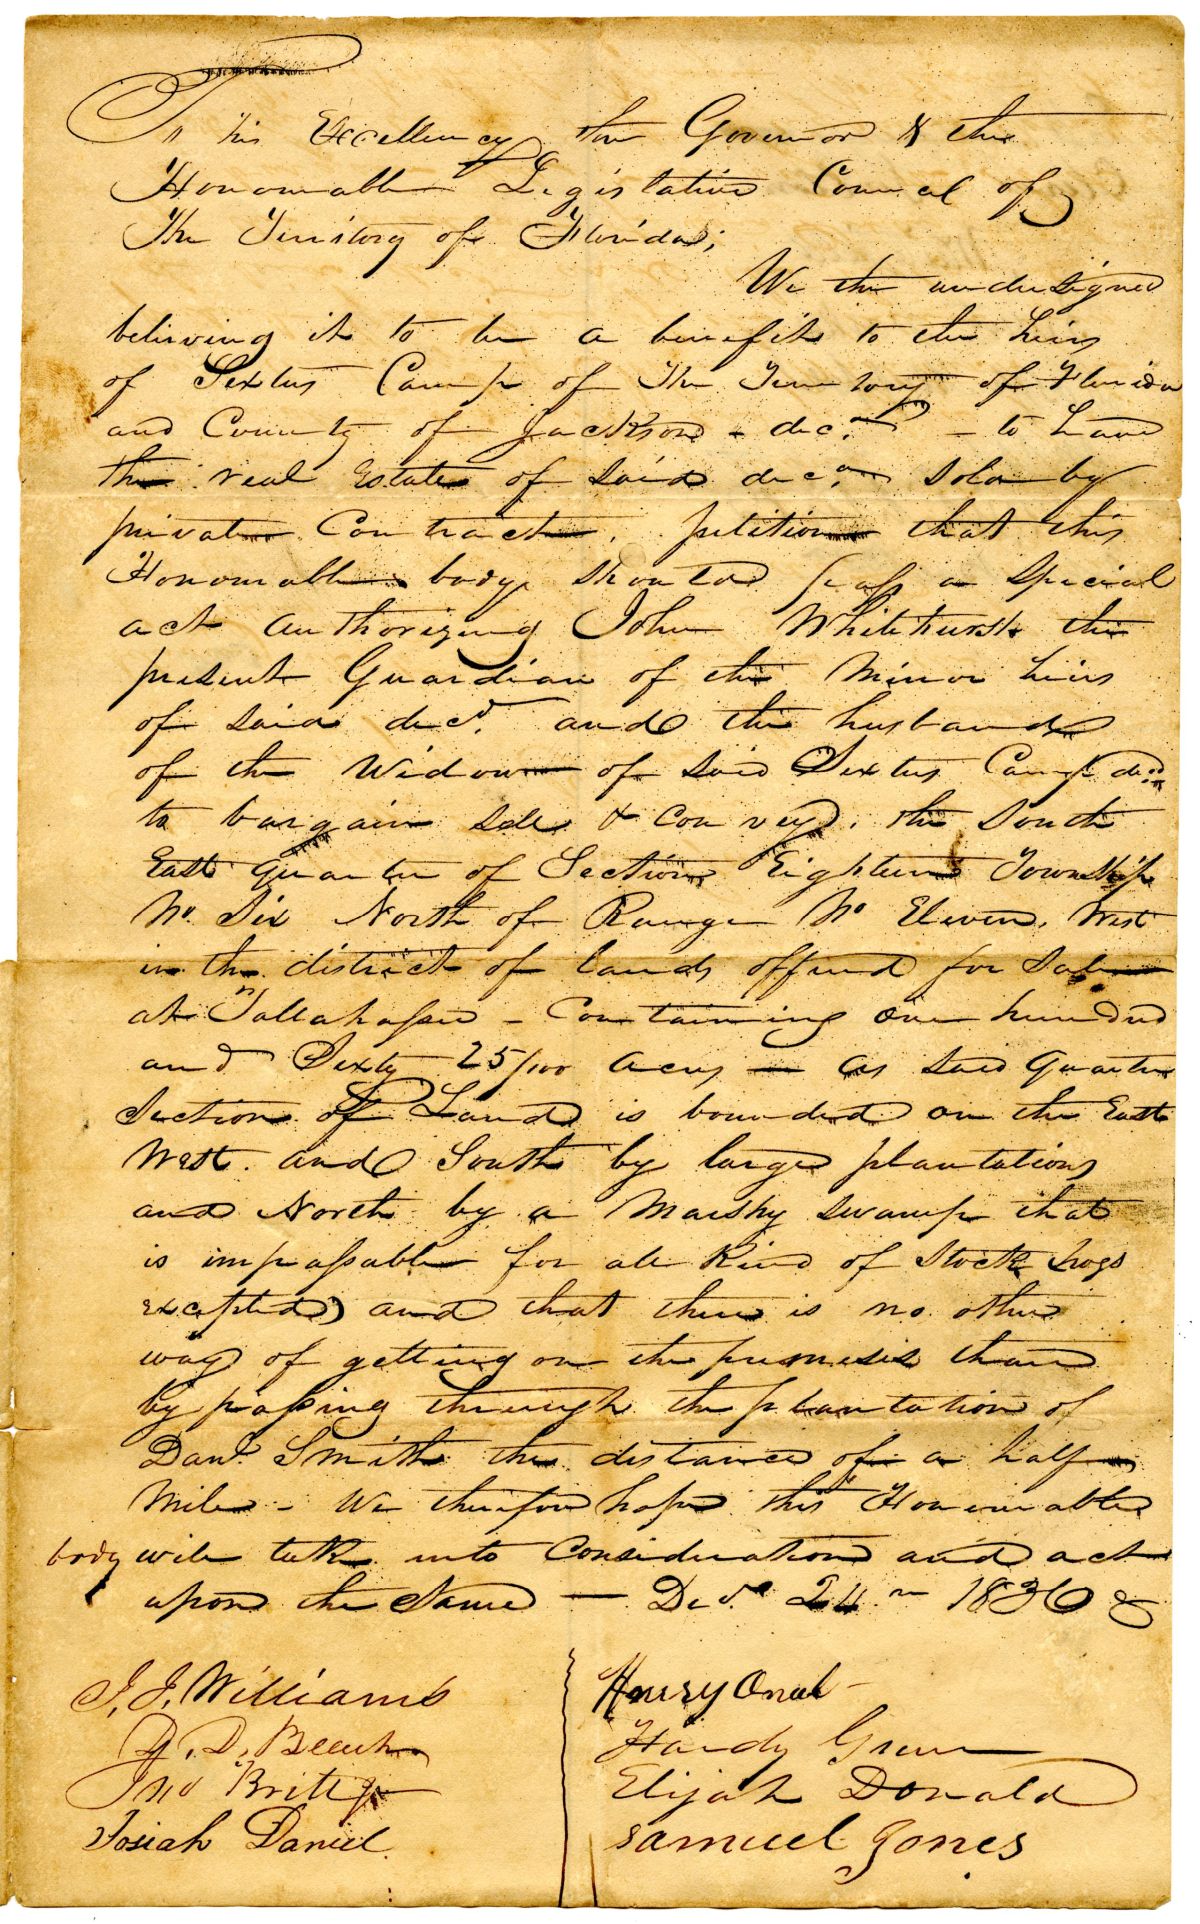 To his Excellency the Governor & the
Honourable Legislative Councel of
The Territory of Florida;
We the undersigned
believing it to be a benefit to the heirs
of Sextus Camp of the Territory of Florida
and County of Jackson - decd - to have
the real Estate of said decd sold by
private Contract. petition that this
Honourable body should pass a special
act authorizing John Whitehurst the
present Guardian of the Minor heirs
of said decd. and the husband
of the Widow of said Sextus Camp decd
to bargain sell & convey. the South
East quarter of Section Eighteen Township
No. Six North of Range No Eleven. West
in the district of lands offered for sale
at Tallahassee - Containing One hundred
and Sixty 25/100 acres - as said quarter
Section of Land is bounded on the East
West. and South by large plantations
and North by a Marshy swamp that
is impassable for all kind of Stock hogs
excepted) and that there is no other
way of getting on the premises than
by passing through the plantation of
Danl. Smith the distance of a half
Mile - We therefore hope this Honourable
body will take into Consideration and act
upon the Same - 24th 1836
J. J. Williams
D. D. Beach
Jno Britt
Josiah Daniel
Henry
Hardy Green
Elijah Donald
Samuel Jones